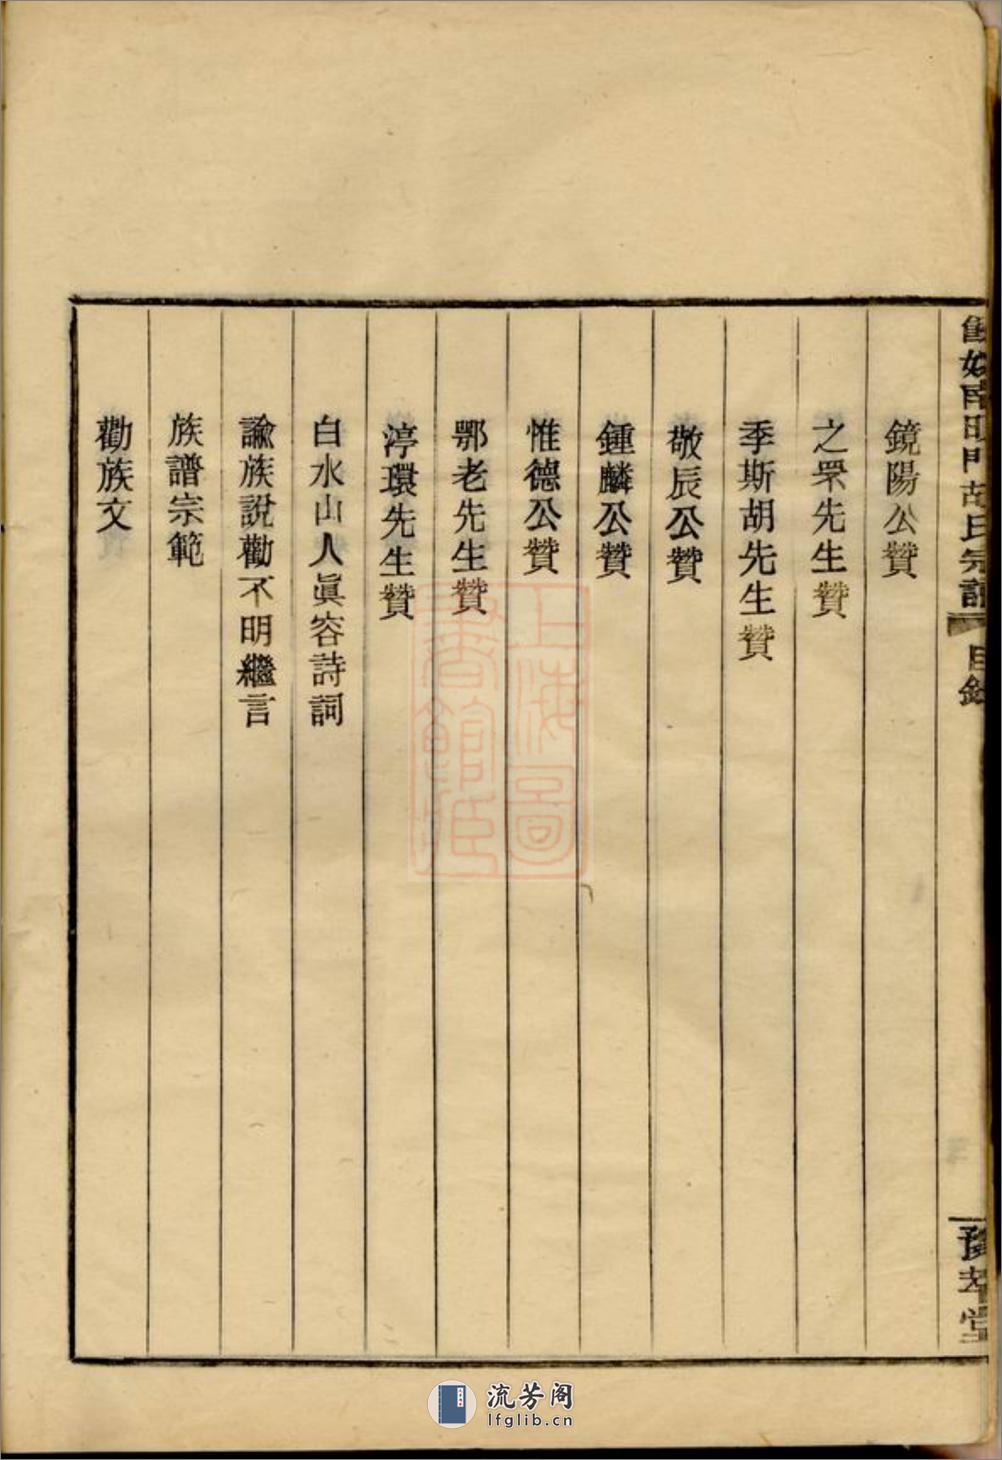 目錄
鏡陽公贊
之眾先生贊
季斯胡先生贊
敬辰公贊
鍾麟公贊
惟德公贊
鄂老先生贊
渟環先生贊
白水山人眞容詩詞
諭族說勸不明繼言
族譜宗範
勸族文
上海圖書館藏
流芳阁
lfglib.cn